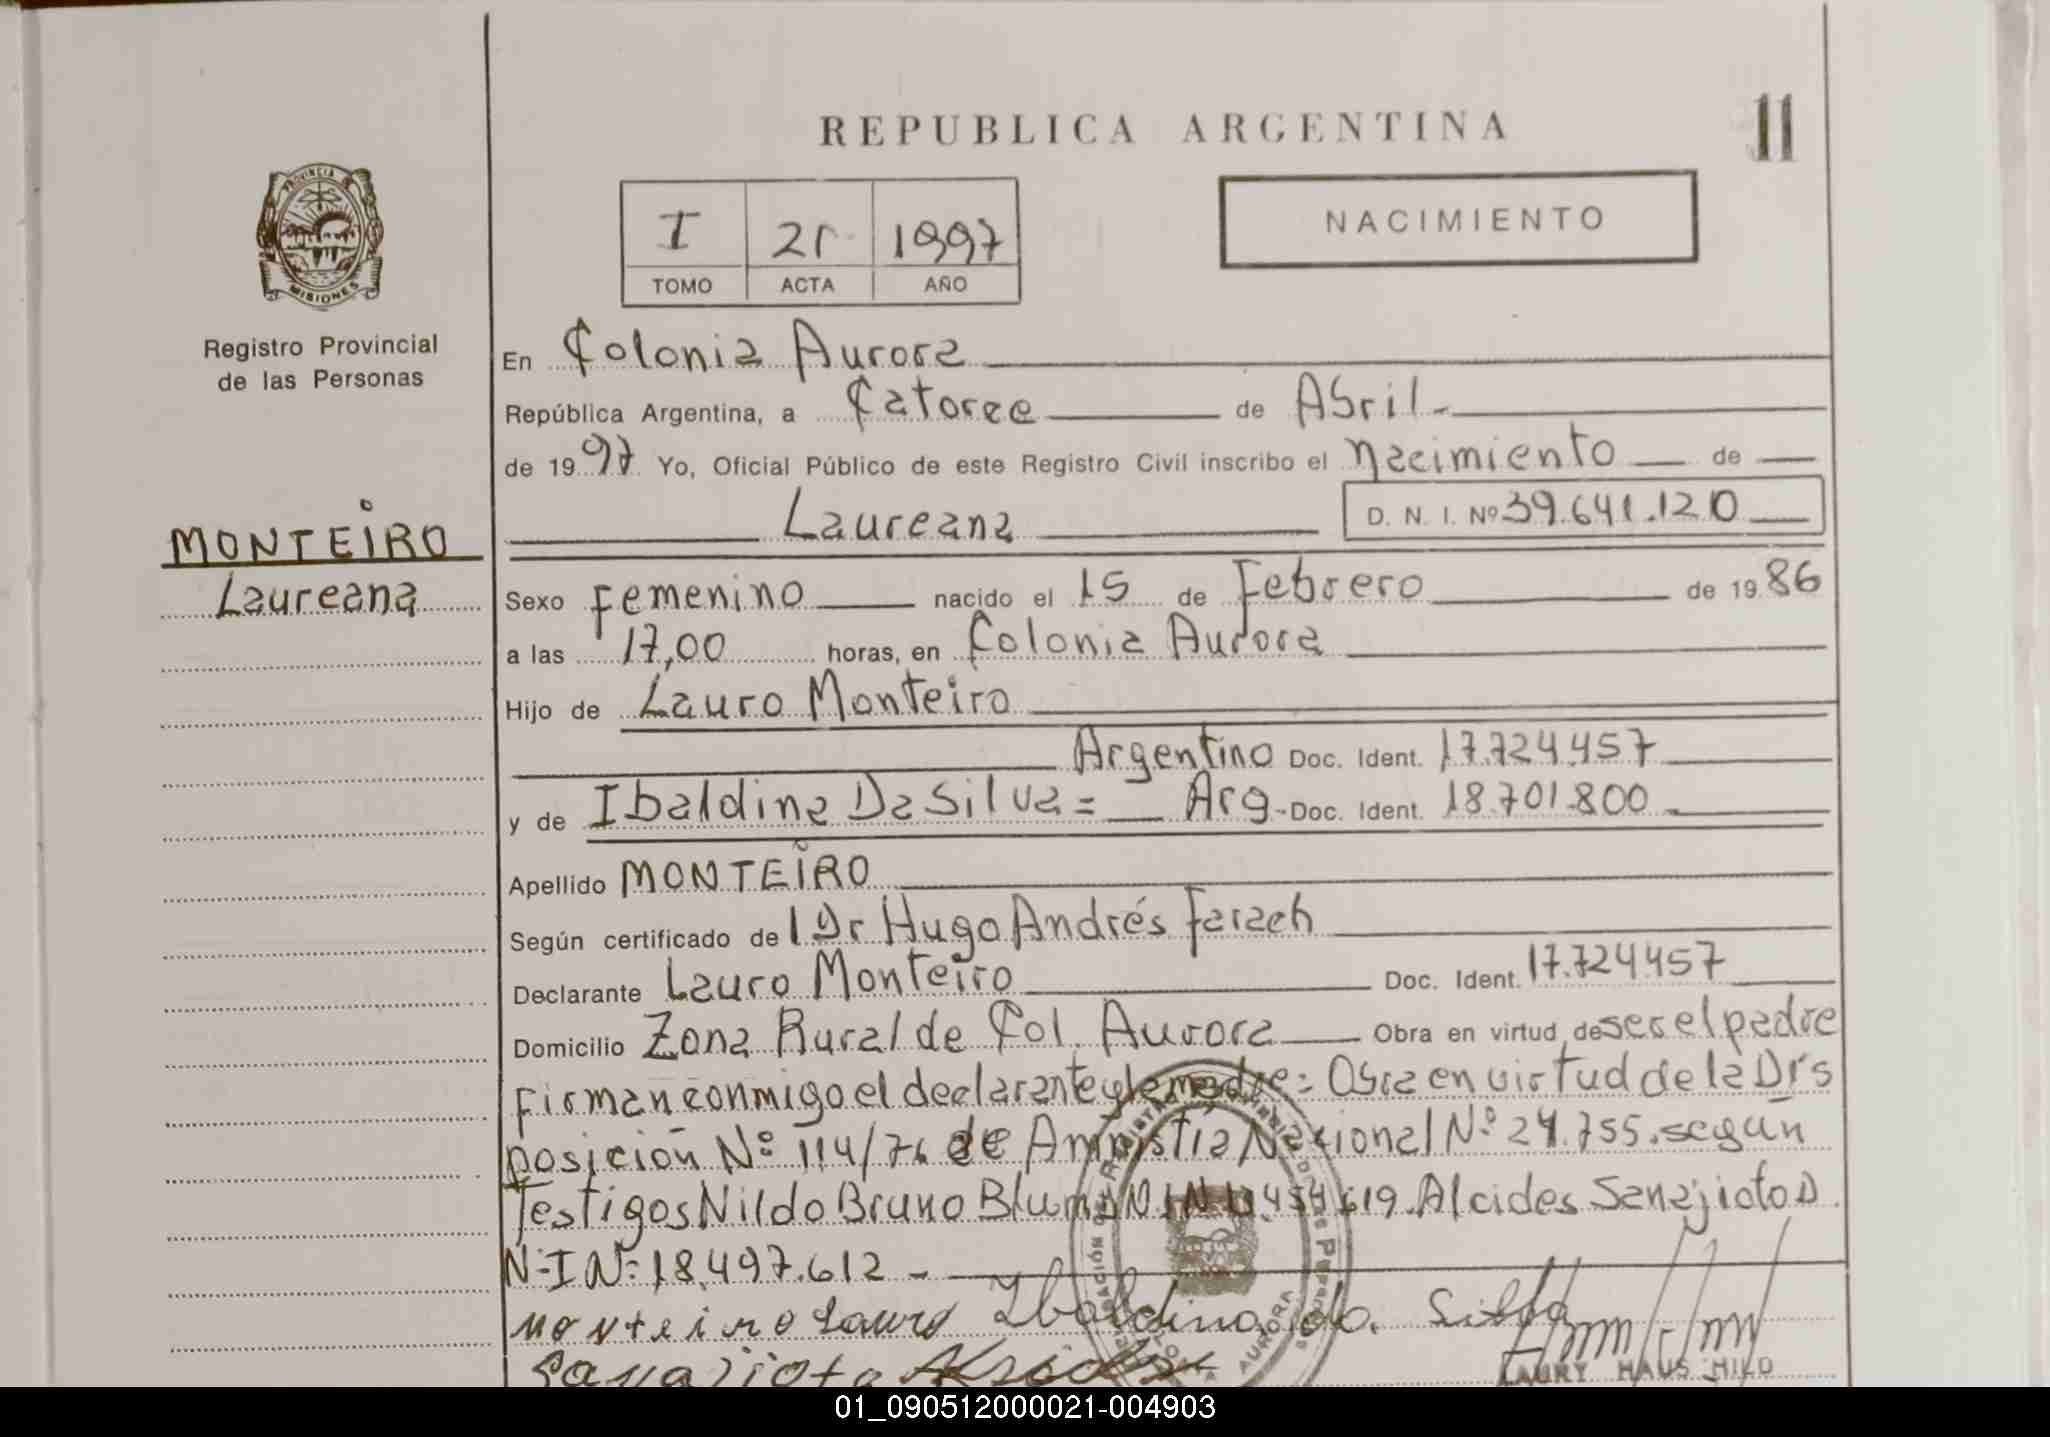 REPUBLICA ARGENTINA
11
PROVINCIA DE
MISIONES
Registro Provincial
de las Personas
I 21 1997
TOMO ACTA AÑO
NACIMIENTO
MONTEIRO
Laureana
En Colonia Aurora
República Argentina, a Catorce de Abril
de 1997 Yo, Oficial Público de este Registro Civil inscribo el nacimiento de
Laureana D. N. I. Nº 39.641.120
Sexo Femenino nacido el 15 de Febrero de 1986
a las 17,00 horas, en Colonia Aurora
Hijo de Lauro Monteiro
Argentino Doc. Ident. 17.724.457
y de Ibaldina Da Silva = Arg- Doc. Ident. 18.701.800
Apellido MONTEIRO
Según certificado del Dr Hugo Andrés Farach
Declarante Lauro Monteiro Doc. Ident. 17.724457
Domicilio Zona Rural de Col. Aurora Obra en virtud de ser el padre
Firman conmigo el declarante y la madre = Obra en virtud de la Dis
posición Nº 114/76 de Amnistia Nacional Nº 24.755. según
Testigos Nildo Bruno Blum Alcides Sanajioto D
N-I Nº 18.497.612 -
Monteiro Lauro Ibaldina da Silva
Sanajioto Alcides
LAURY HAUS HILD
01_090512000021-004903